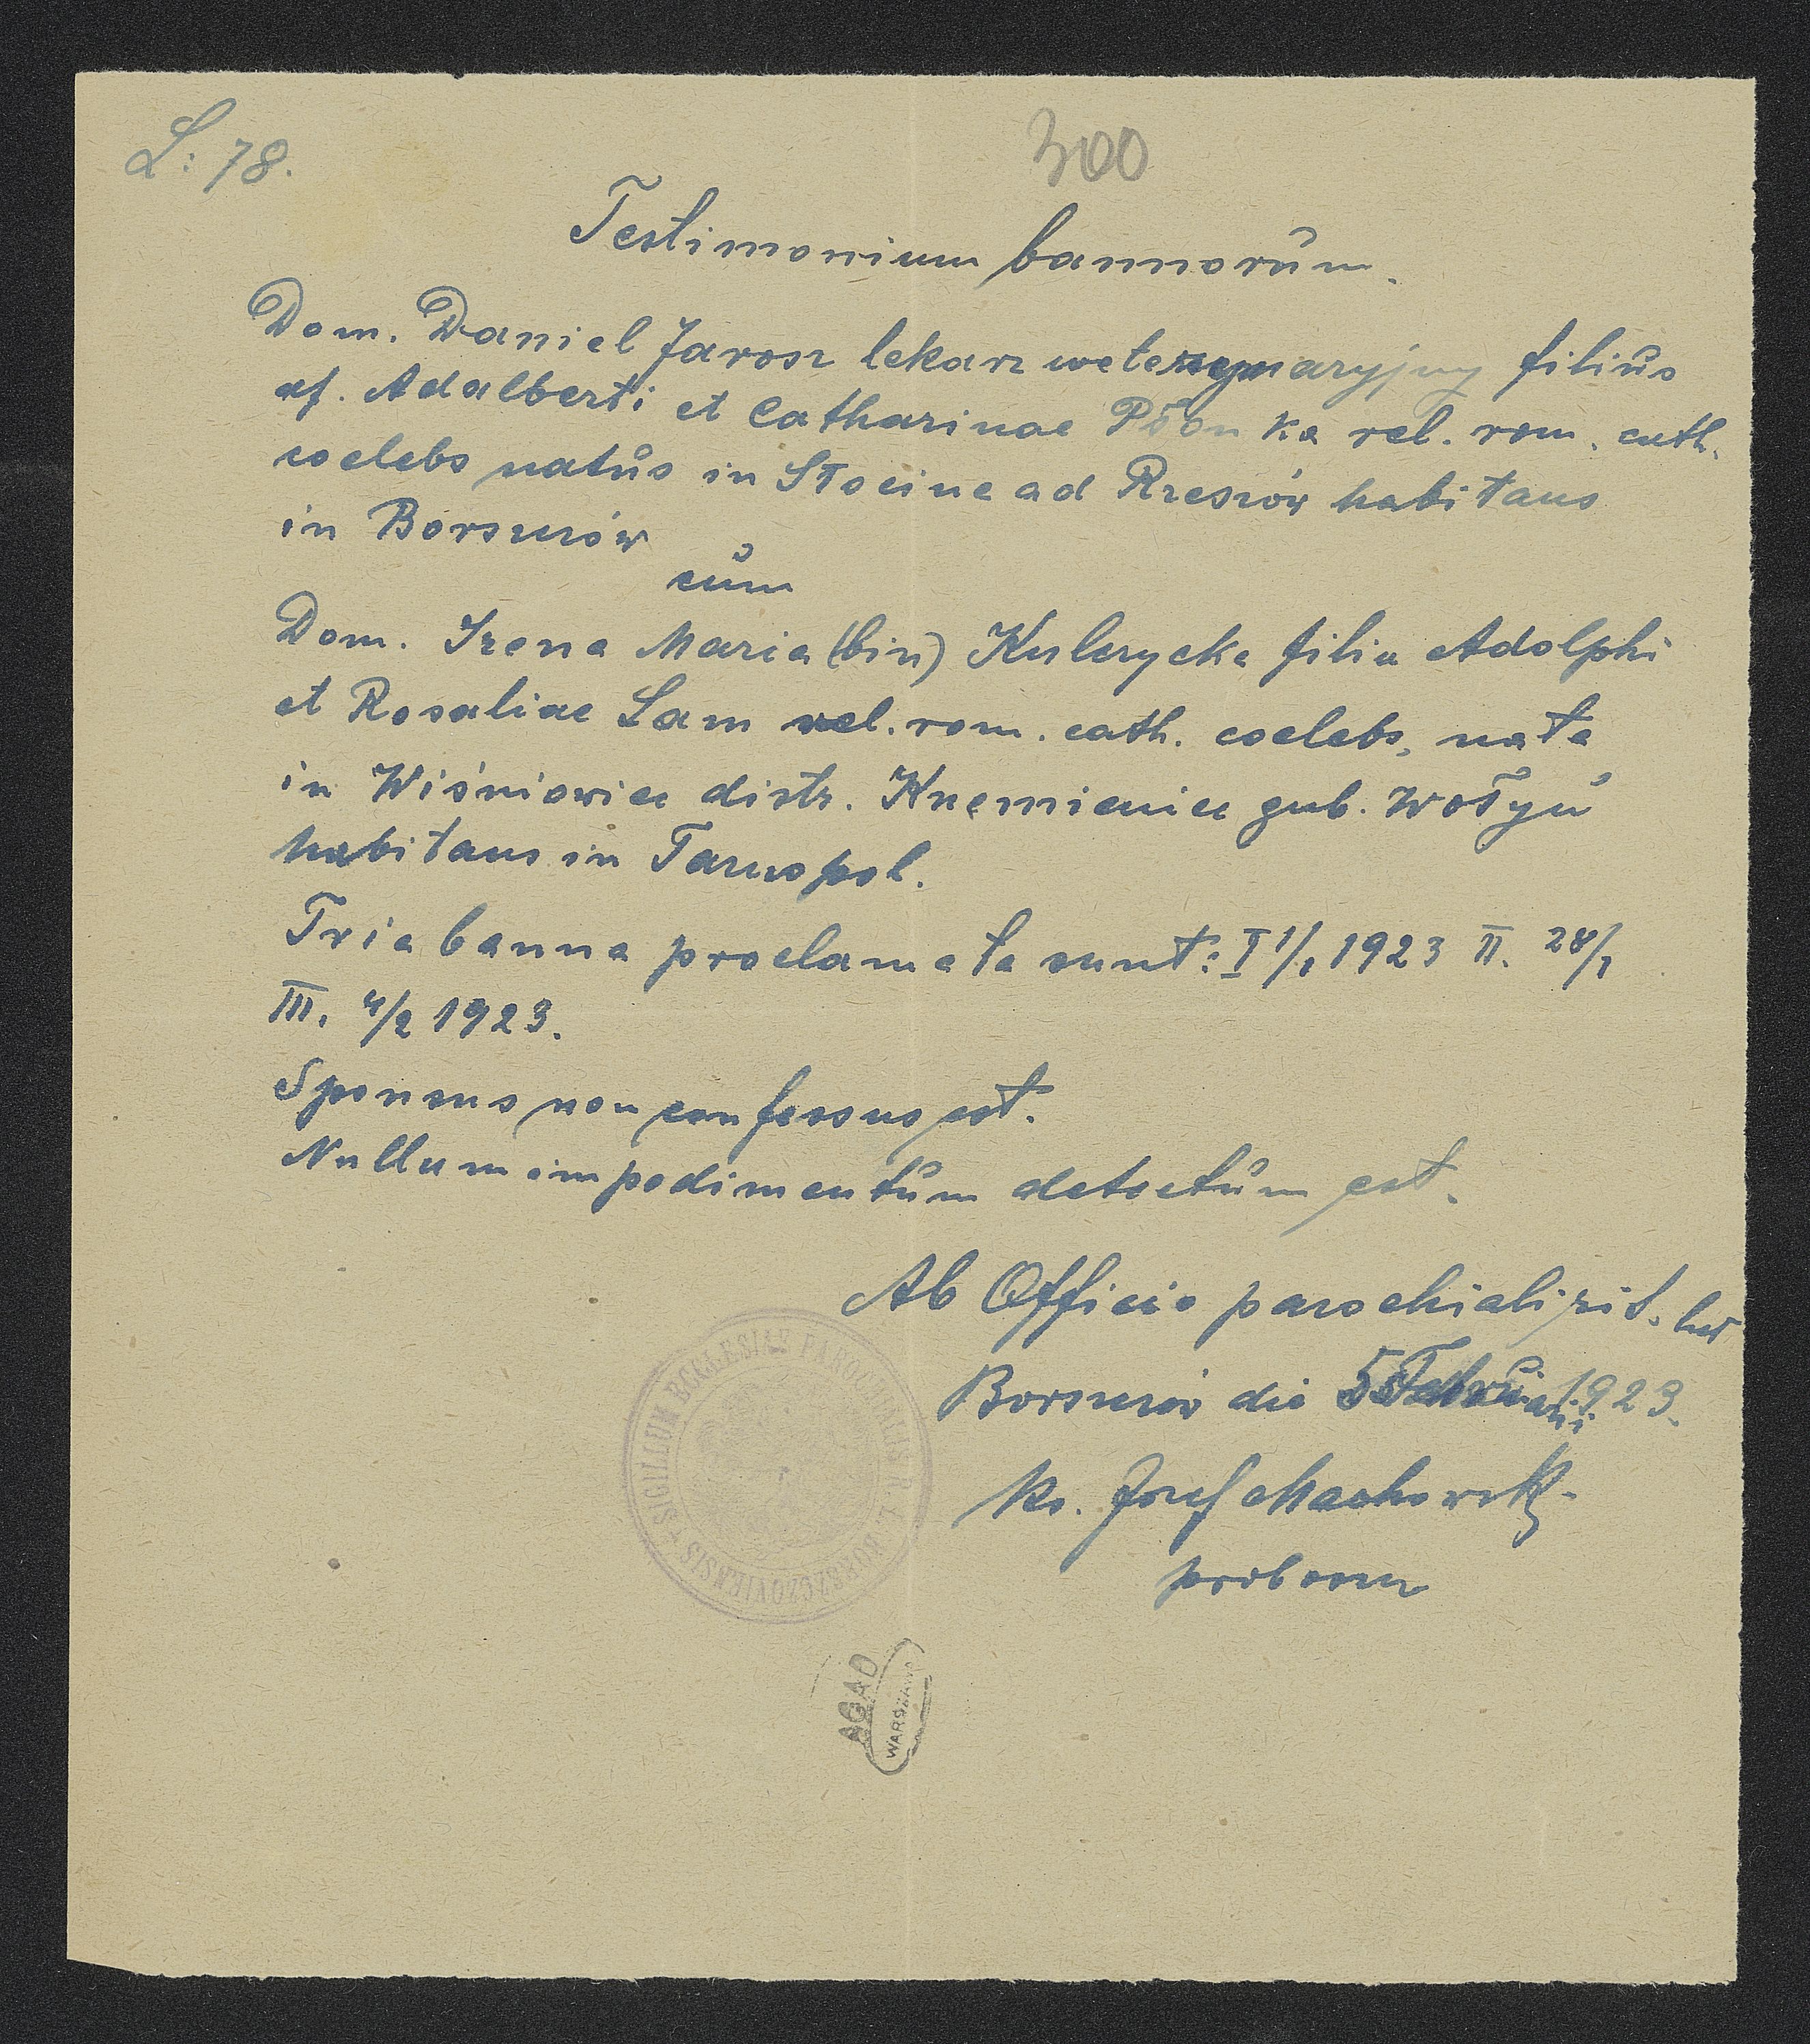 L: 78.
300
Testimonium bannorum.
Dom. Daniel Jarosz lekarz weterynaryjny filius
Adalberti et Catharinae rel. rom. cath.
coelebs natus in Słocine ad Rzeszów habitans
in Borszczów
cum
Dom. Irena Maria (bin) Kulczycka filia Adolphi
et Rosaliae Lam rel. rom. cath. coelebs, nata
in Wiśniowiec distr. Krzemieniec gub. Wołyń
habitans in Tarnopol.
Tria banna proclamata sunt: I 1/1 1923 II. 28/1
III. 4/2 1923.
Sponsus non confessus est.
Nullum impedimentum detectum est.
Ab Officio parochiali rit. lat
Borszczów die 5 Februarii 1923.
Ks. Józef Machowski
proboszcz
SIGILLUM ECCLESIAE PAROCHIALIS R. L. BORSZCZOVIENSIS
AGAD
WARSZAWA